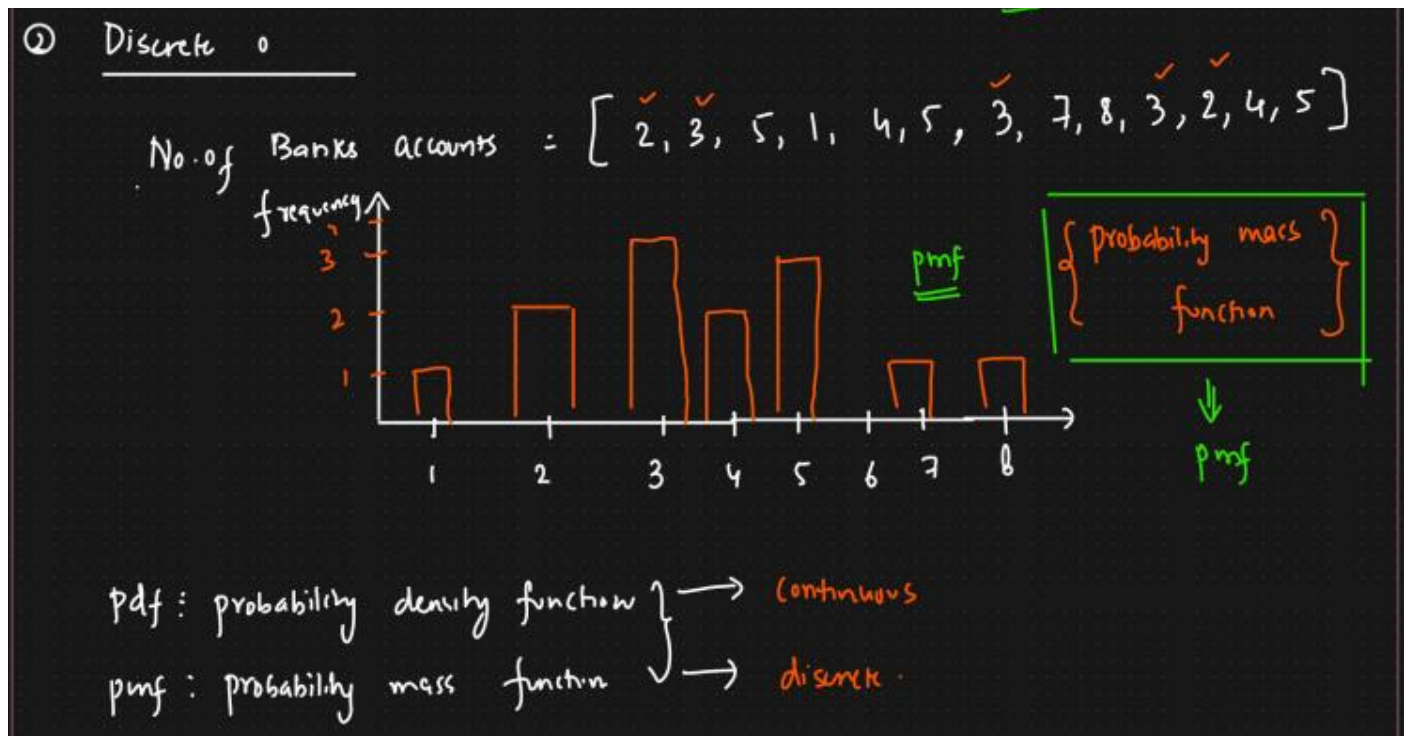 ② Discrete
No. of Banks accounts = [2, 3, 5, 1, 4, 5, 3, 7, 8, 3, 2, 4, 5]
frequency
3
2
1
pmf
{probability mass
function}
pmf
1 2 3 4 5 6 7 8
pdf : probability density function } → continuous
pmf : probability mass function → discrete.